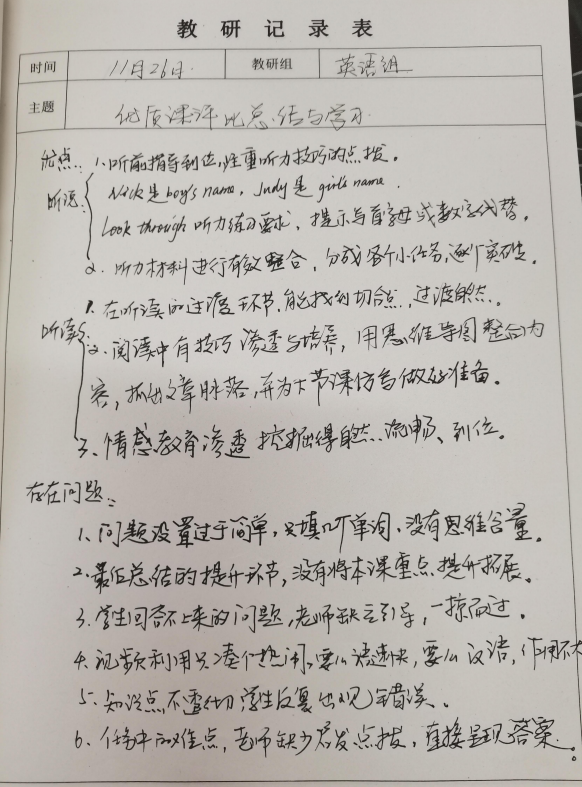 教研记录表
时间 11月26日 教研组 英语组
主题 优质课评比总结与学习
优点: 1、听前指导到位,注重听力技巧的点拨。
听说: Nick是boy's name, Judy是girl's name.
Look through 听力练习要求, 提示与首字母或数字代替。
2、听力材料进行有效整合,分成各个小任务,逐个突破。
1、在听读的过渡环节,能找到切合点,过渡自然。
听读: 2、阅读中有技巧渗透与培养,用思维导图整合内
容,抓出文章脉落,并为下节课仿写做好准备。
3、情感教育渗透挖掘得自然、流畅、到位。
存在问题:
1、问题设置过于简单,只填几个单词,没有思维含量。
2、最后总结的提升环节,没有将本课重点提升拓展。
3、学生回答不上来的问题,老师缺乏引导,一掠而过。
4、视频利用只凑个热闹,要么语速快,要么汉语,作用不大
5、知识点不透彻,学生反复出现错误。
6、任务中的难点,老师缺少启发点拨,直接呈现答案。